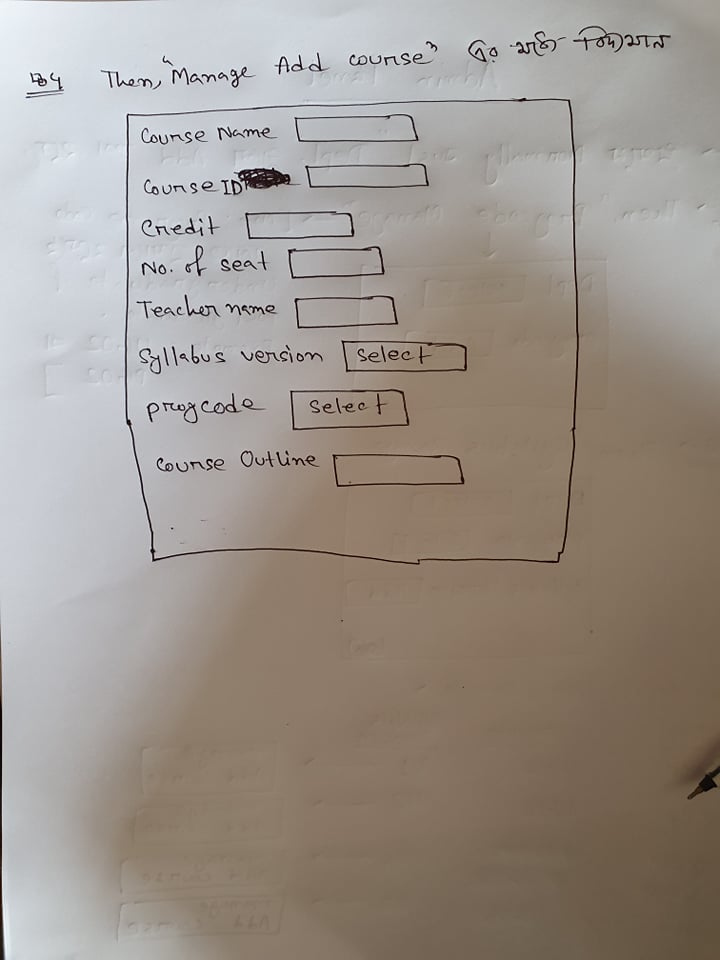 Then, "Manage Add course" এর মধ্যে বিদ্যমান
Course Name
Course ID
Credit
No. of seat
Teacher name
Syllabus version select
progcode select
Course Outline